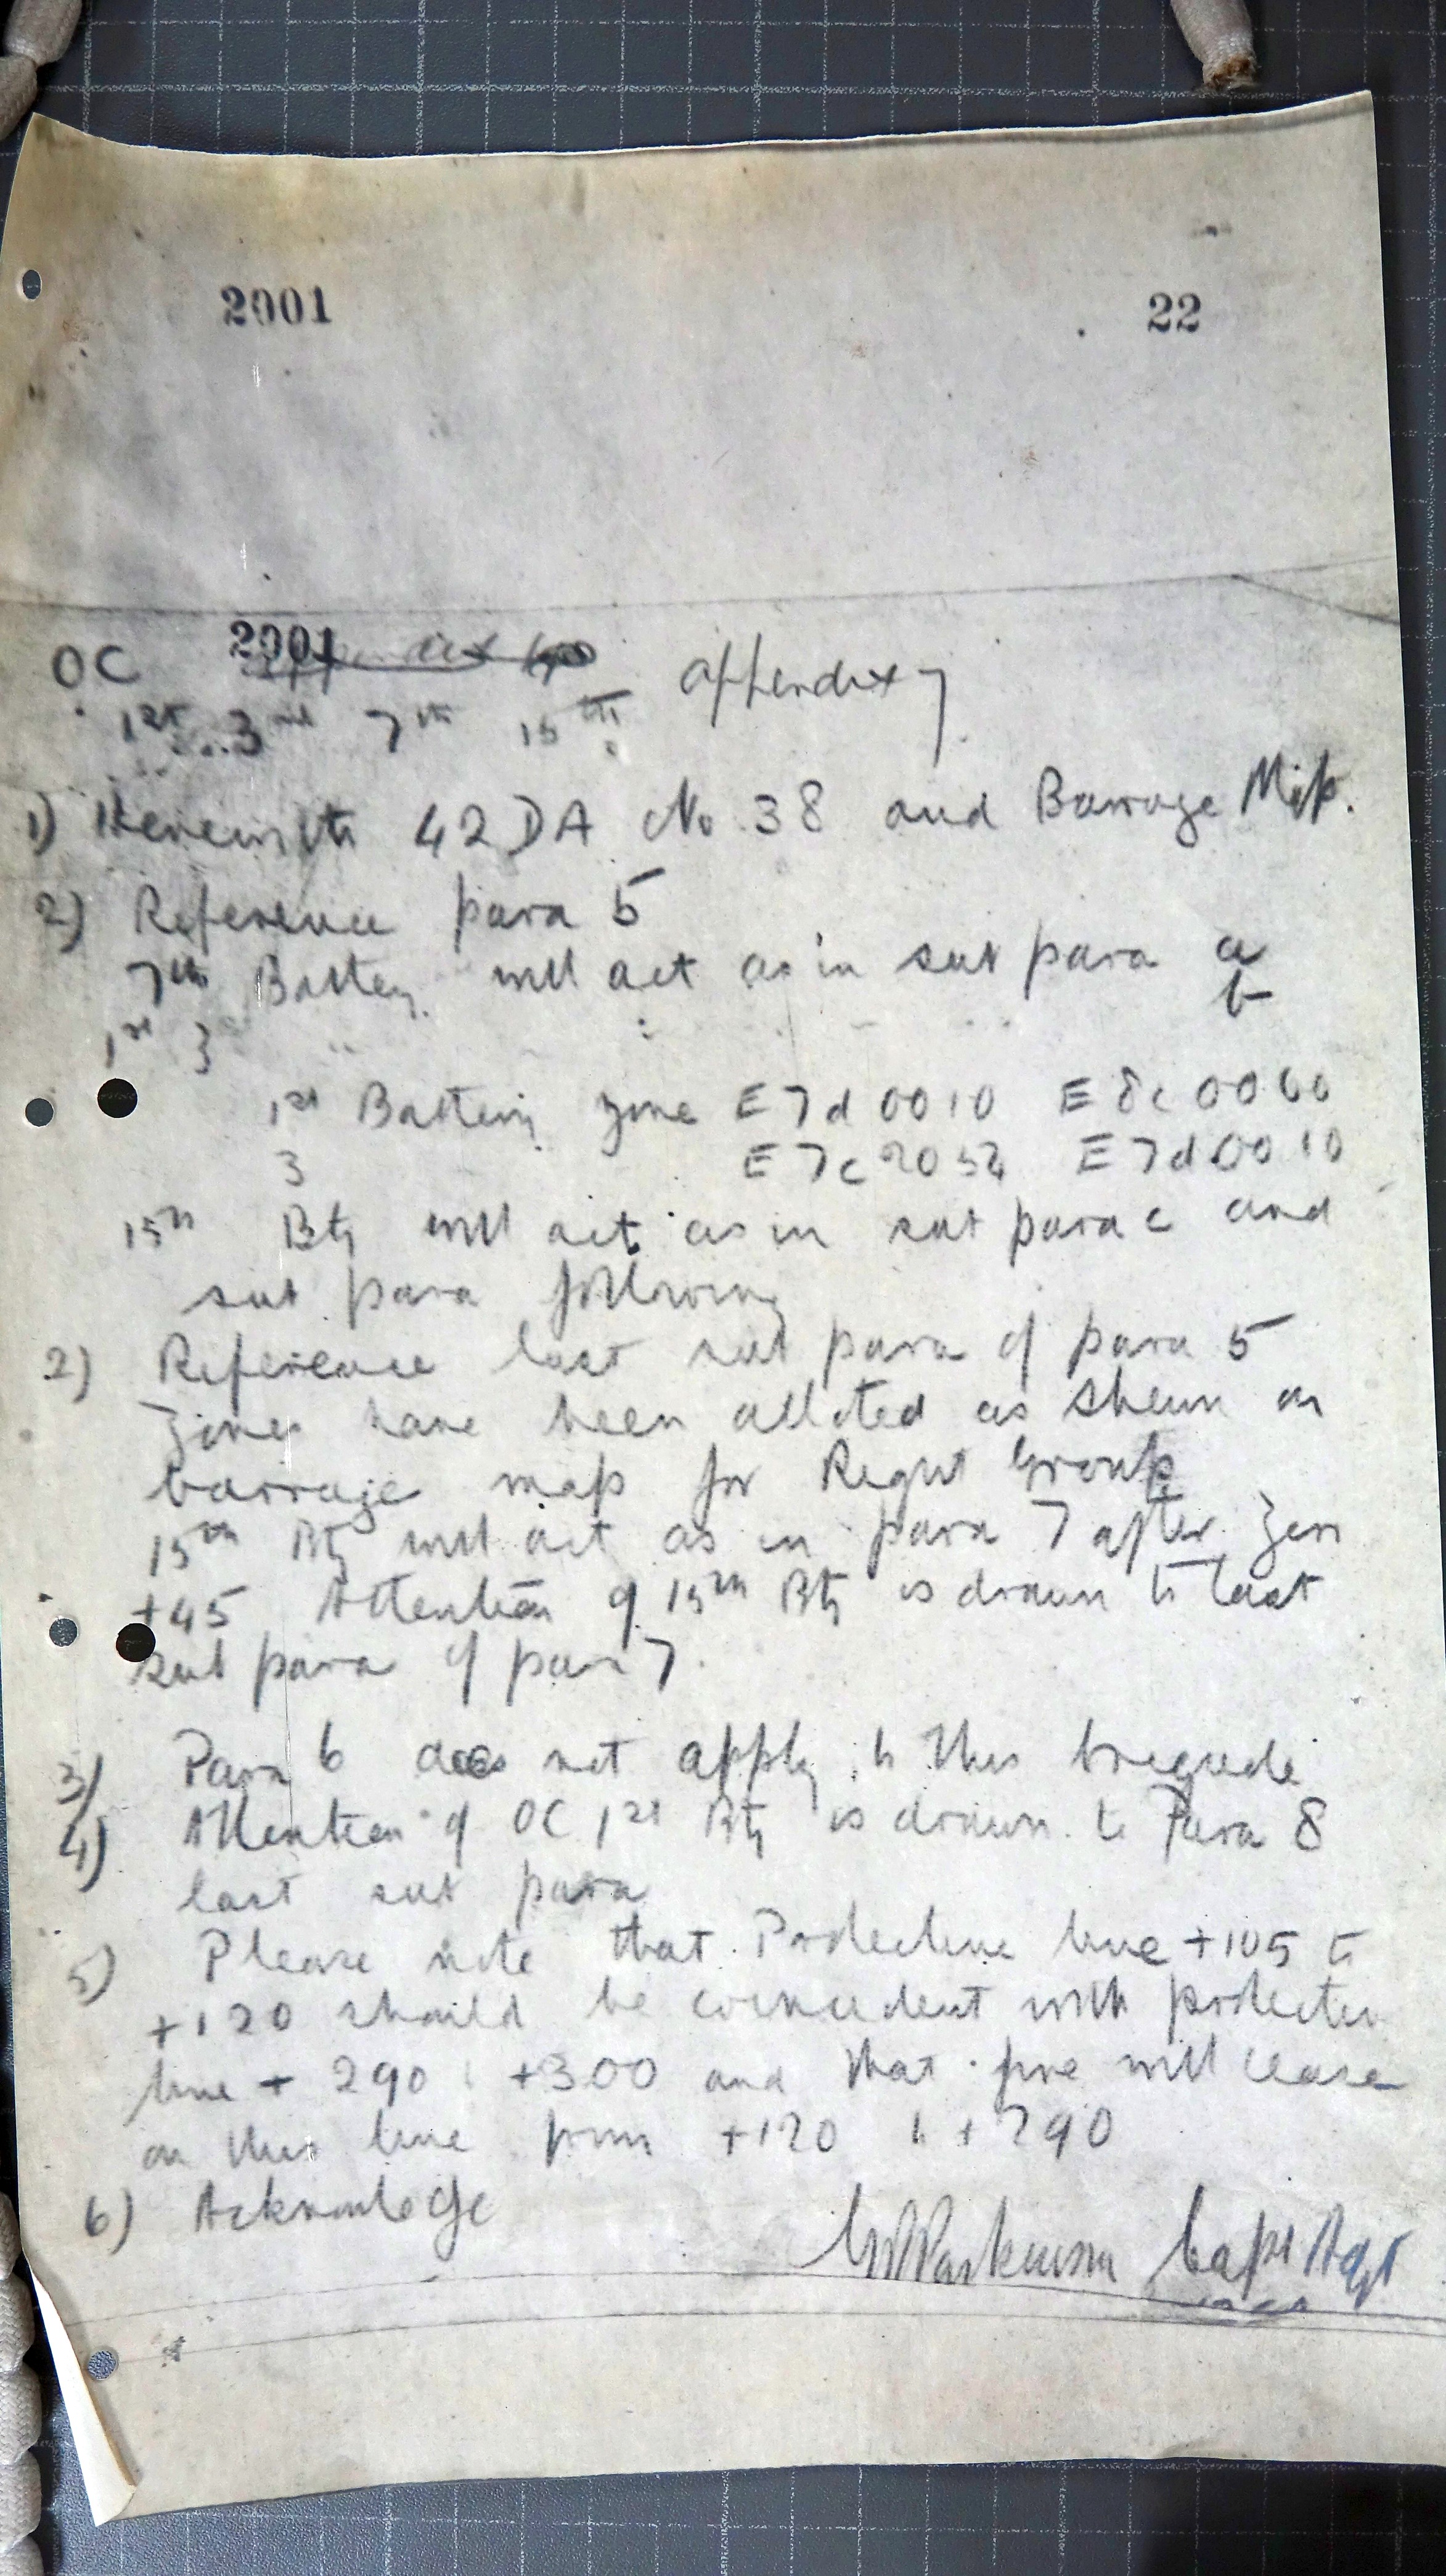 2001 22
2001
OC appendix 7
1st 3rd 7th 15th
1) Herewith 42 DA No. 38 and Barrage Map.
2) Reference para 5
7th Battery will act as in sub para a
1st 3 " " : " " b
1st Battery zone E7d0010 E8c0060
3 E7c2052 E7d0010
15th Bty will act as in sub para c and
sub para following
2) Reference last sub para of para 5
Zones have been alloted as shewn on
barrage map for Right Group
15th Bty will act as in para 7 after Zero
+45 Attention of 15th Bty is drawn to last
sub para of para 7.
3) Para 6 does not apply to this brigade
4) Attention of OC 1st Bty is drawn to Para 8
last sub para
5) Please note that Protective line +105 to
+120 should be coincident with protective
line + 290 to +300 and that fire will cease
on this line from +120 to +290
6) Acknowledge
Parkinson Capt Adjt